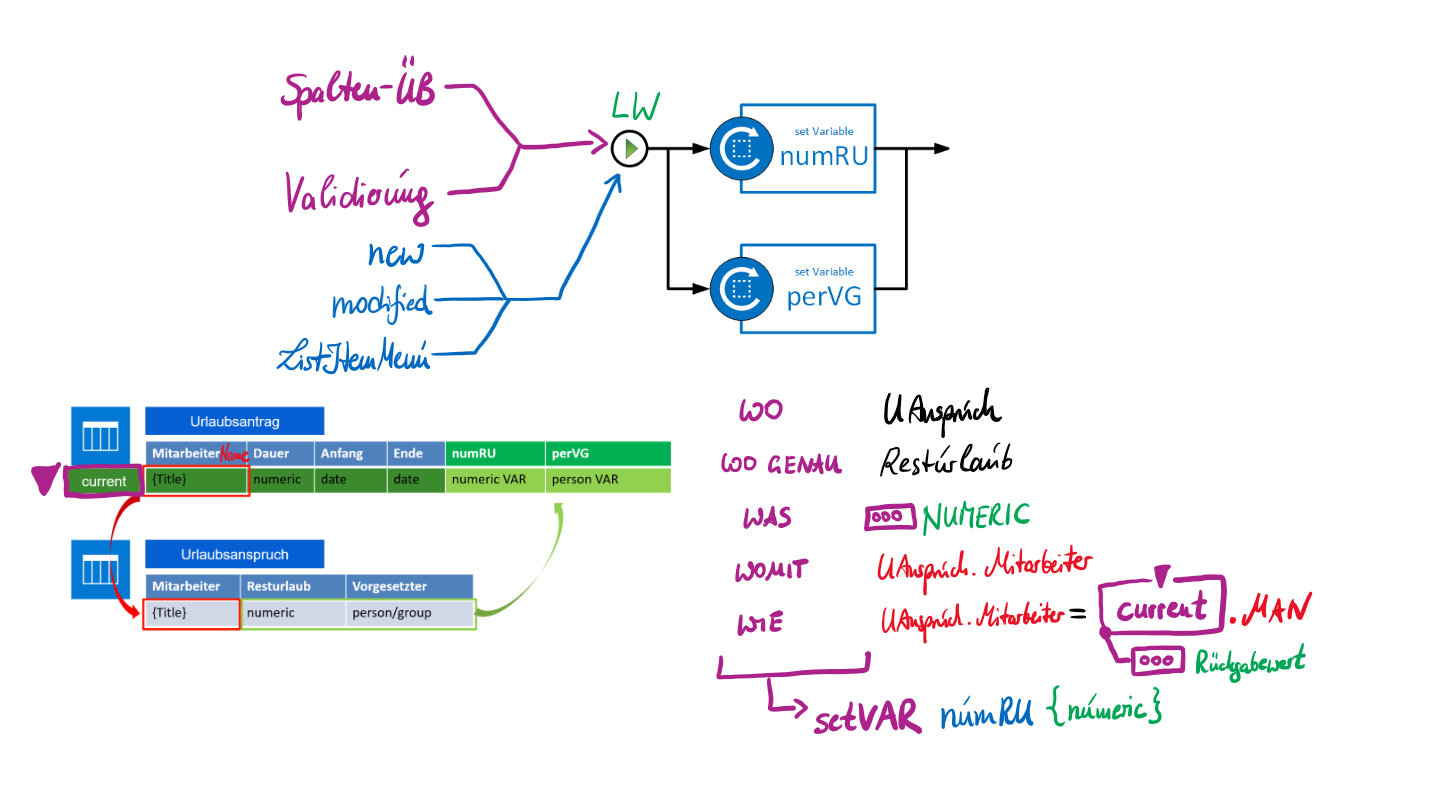 Spalten-ÜB
LW
set Variable
numRU
Validierúng
new
modified
ListItemMenú
set Variable
perVG
Urlaubsantrag
MitarbeiterName Dauer Anfang Ende numRU perVG
current {Title} numeric date date numeric VAR person VAR
Urlaubsanspruch
Mitarbeiter Resturlaub Vorgesetzter
{Title} numeric person/group
WO UAnsprúch
WO GENAU Restúrlaúb
WAS ooo NUMERIC
WOMIT UAnsprúch.Mitarbeiter
WIE UAnsprúch.Mitarbeiter = current.MAN
ooo Rückgabewert
setVAR númRU {númeric}